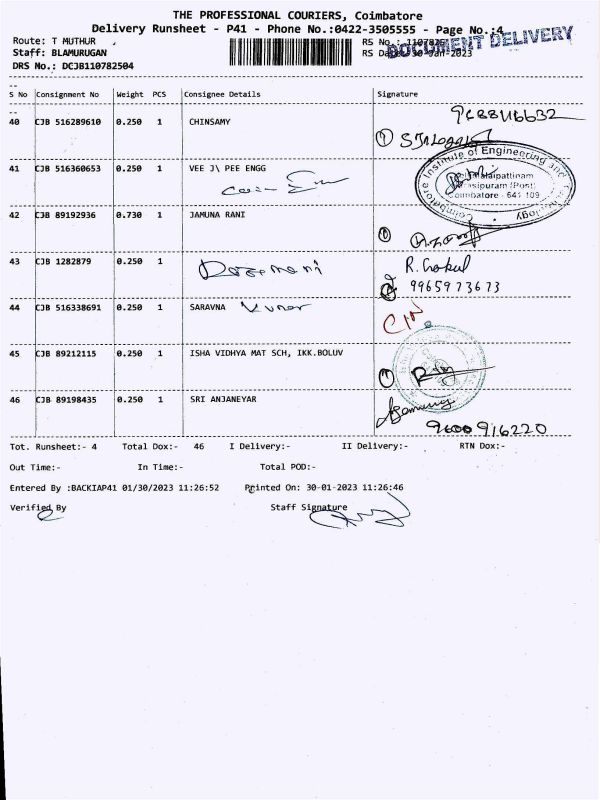 THE PROFESSIONAL COURIERS, Coimbatore
Delivery Runsheet - P41 - Phone No.:0422-3505555 - Page No.:4
DOCUMENT DELIVERY
Route: T MUTHUR
RS No.:
Staff: BLAMURUGAN
RS Date: 30-Jan-2023
DRS No.: DCJB110782504
S No Consignment No Weight PCS Consignee Details Signature
9688416632
40 CJB 516289610 0.250 1 CHINSAMY
41 CJB 516360653 0.250 1 VEE J\ PEE ENGG
Institute of Engineering and
Coimbatore - 641 109
42 CJB 89192936 0.730 1 JAMUNA RANI
43 CJB 1282879 0.250 1 R. Gokul
9965973673
44 CJB 516338691 0.250 1 SARAVNA Kumar
45 CJB 89212115 0.250 1 ISHA VIDHYA MAT SCH, IKK.BOLUV
46 CJB 89198435 0.250 1 SRI ANJANEYAR
9600916220
Tot. Runsheet:- 4 Total Dox:- 46 I Delivery:- II Delivery:- RTN Dox:-
Out Time:- In Time:- Total POD:-
Entered By :BACKIAP41 01/30/2023 11:26:52 Printed On: 30-01-2023 11:26:46
Verified By Staff Signature